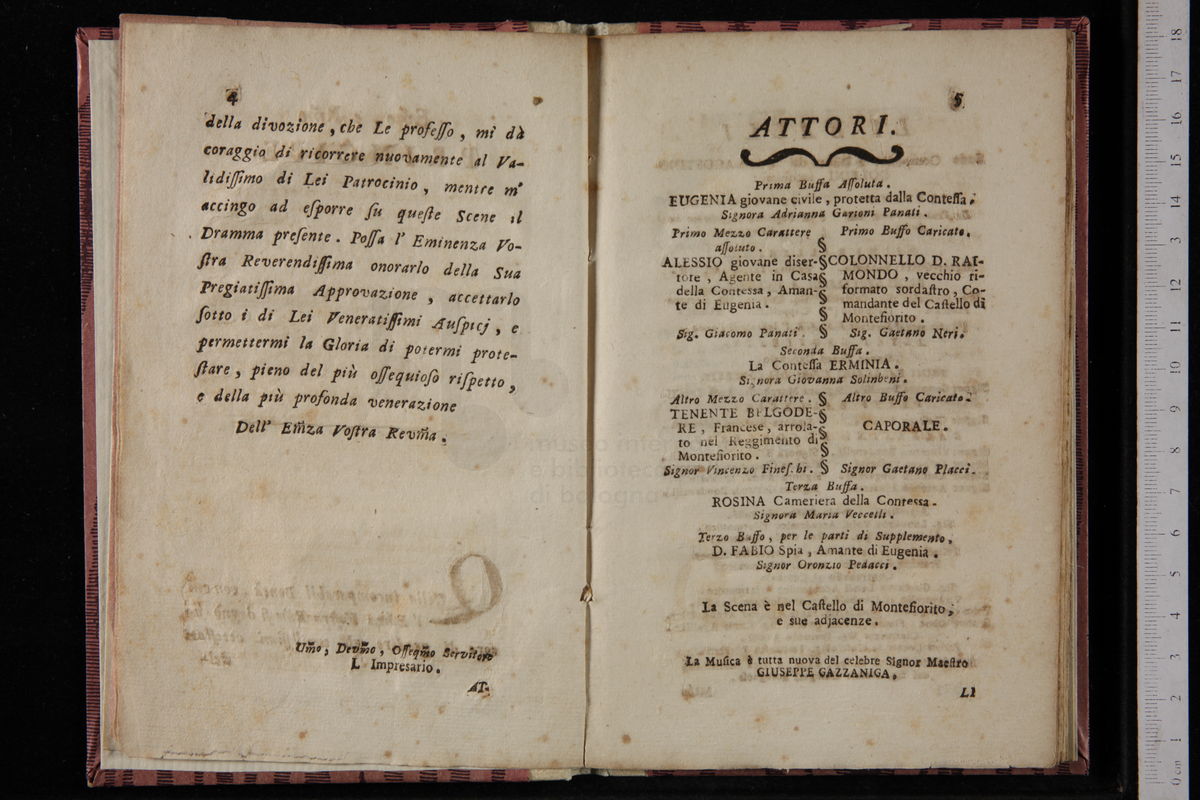 4
della divozione, che Le profeſſo, mi dà
coraggio di ricorrere nuovamente al Va-
lidiſſimo di Lei Patrocinio, mentre m'
accingo ad eſporre ſu queſte Scene il
Dramma preſente. Poſſa l' Eminenza Vo-
ſtra Reverendiſſima onorarlo della Sua
Pregiatiſſima Approvazione, accettarlo
ſotto i di Lei Veneratiſſimi Auſpicj, e
permettermi la Gloria di potermi prote-
ſtare, pieno del più oſſequioſo riſpetto,
e della più profonda venerazione
Dell' Em̃za Voſtra Revm̃a.
Um̃o, Devm̃o, Oſſeqm̃o Servitore
L Impresario.
AT-
5
ATTORI.
Prima Buffa Aſſoluta.
EUGENIA giovane civile, protetta dalla Conteſſa.
Signora Adrianna Garioni Panati.
Primo Mezzo Carattere
aſſoluto.
ALESSIO giovane diser-
tore, Agente in Casa
della Contessa, Aman-
te di Eugenia.
Sig. Giacomo Panati.
§
§
§
§
§
§
Primo Buffo Caricato.
COLONNELLO D. RAI-
MONDO, vecchio ri-
formato sordaſtro, Co-
mandante del Caſtello di
Montefiorito.
Sig. Gaetano Neri.
Seconda Buffa.
La Conteſſa ERMINIA.
Signora Giovanna Solinbeni.
Altro Mezzo Carattere.
TENENTE BELGODE-
RE, Francese, arrola-
to nel Reggimento di
Montefiorito.
Signor Vincenzo Fineſchi.
§
§
§
§
§
Altro Buffo Caricato.
CAPORALE.
Signor Gaetano Placci.
Terza Buffa.
ROSINA Cameriera della Contessa.
Signora Maria Veccelli.
Terzo Buffo, per le parti di Supplemento,
D. FABIO Spia, Amante di Eugenia.
Signor Oronzio Pedacci.
La Scena è nel Caſtello di Montefiorito,
e sue adjacenze.
La Muſica è tutta nuova del celebre Signor Maeſtro
GIUSEPPE GAZZANIGA.
LI
museo
e biblioteca
di bologna
0 cm 1 2 3 4 5 6 7 8 9 10 11 12 13 14 15 16 17 18